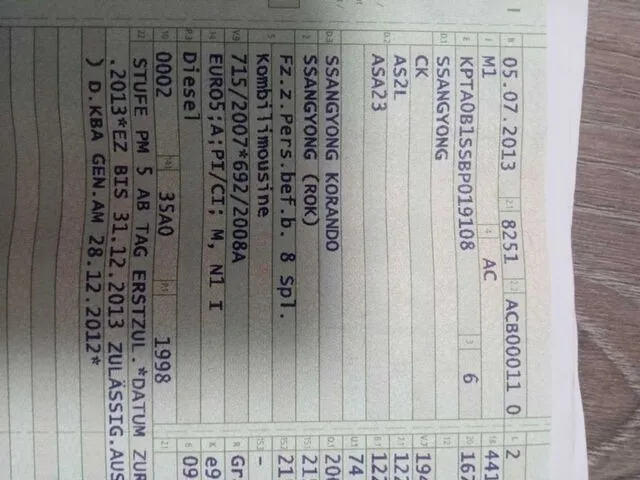 B 05.07.2013 2.1 8251 2.2 ACB00011 0
J M1 4 AC
E KPTA0B1SSBP019108 3 6
D.1 SSANGYONG
CK
D.2 AS2L
ASA23
D.3 SSANGYONG KORANDO
2 SSANGYONG (ROK)
5 Fz.z.Pers.bef.b. 8 Spl.
Kombilimousine
V.9 715/2007*692/2008A
14 EURO5;A;PI/CI; M, N1 I
P.3 Diesel
10 0002 14.1 35A0 P.1 1998
22 STUFE PM 5 AB TAG ERSTZUL.*DATUM ZUR
.2013*EZ BIS 31.12.2013 ZULÄSSIG.AUS
) D.KBA GEN.AM 28.12.2012*
L 2
18 441
20 167
12
V.7 194
7.1 122
8.1 122
U.1 74
O.1 200
15.1 21
15.2 21
15.3 -
R Gr
K e9
6 09
21